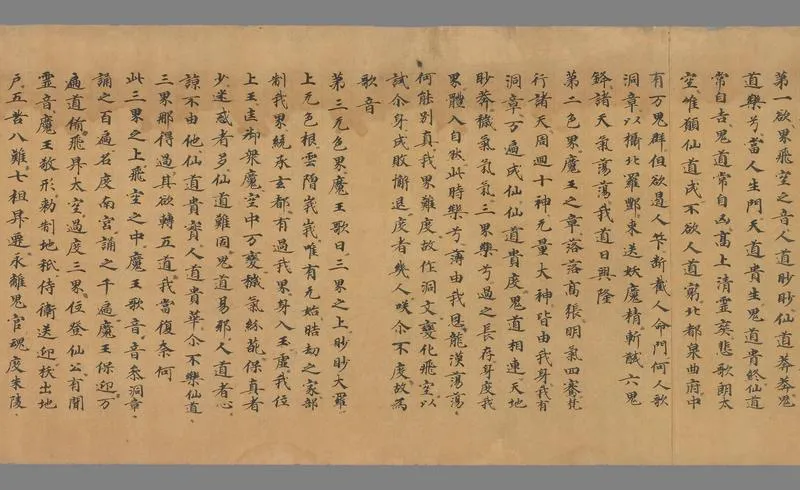 第一欲界飛空之音人道眇眇仙道莽莽鬼
道樂兮當人生門天道貴生鬼道貴終仙道
常自吉鬼道常自凶高上清靈爽悲歌朗太
空唯願仙道成不欲人道窮北都泉曲府中
有万鬼群但欲遏人筭断截人命門何人歌
洞章以攝北羅酆束送妖魔精斬馘六鬼
鋒諸天氣蕩蕩我道日興隆
第二色界魔王之章落落高張明氣四騫梵
行諸天周迴十神无量大神皆由我身我有
洞章万遍成仙仙道貴度鬼道相連天地
眇莽穢氣氣氣三界樂兮過之長存身度我
界體入自然此時樂兮薄由我恩龍漢蕩蕩
何能別真我界難度故作洞文變化飛空以
試尒身成敗懈退度者幾人咲尒不度故為
歌音
第三无色界魔王歌曰三界之上眇眇大羅
上无色根雲階峩峩唯有元始皓劫之家部
制我界統承玄都有過我界身入玉虛我位
上王匡御衆魔空中万變穢氣紛葩保真者
少迷惑者多仙道難固鬼道易邪人道者心
諒不由他仙道貴實人道貴華尒不樂仙道
三界那得過其欲轉五道我當復奈何
此三界之上飛空之中魔王歌音音參洞章
誦之百遍名度南宮誦之千遍魔王保迎万
遍道俻飛昇太空過度三界位登仙公有聞
靈音魔王敬形勑制地祇侍衛送迎拔出地
戶五苦八難七祖昇遷永離鬼官魂度朱陵